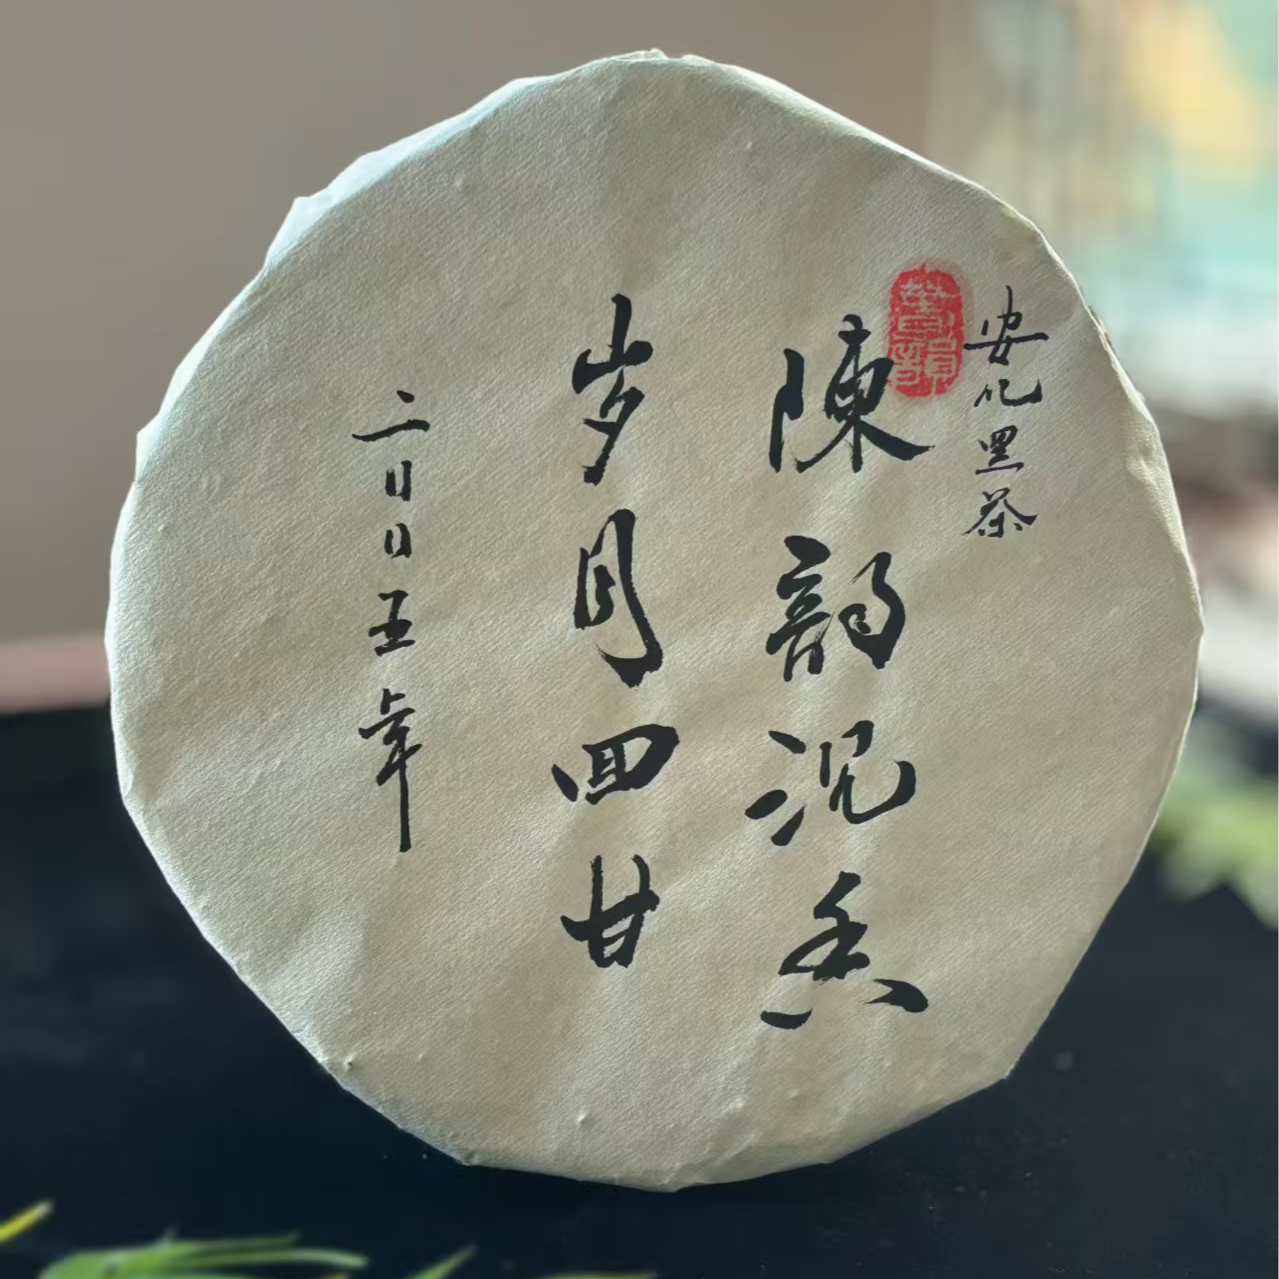 安化黑茶
陳韵沉香
岁月回甘
二〇〇五年